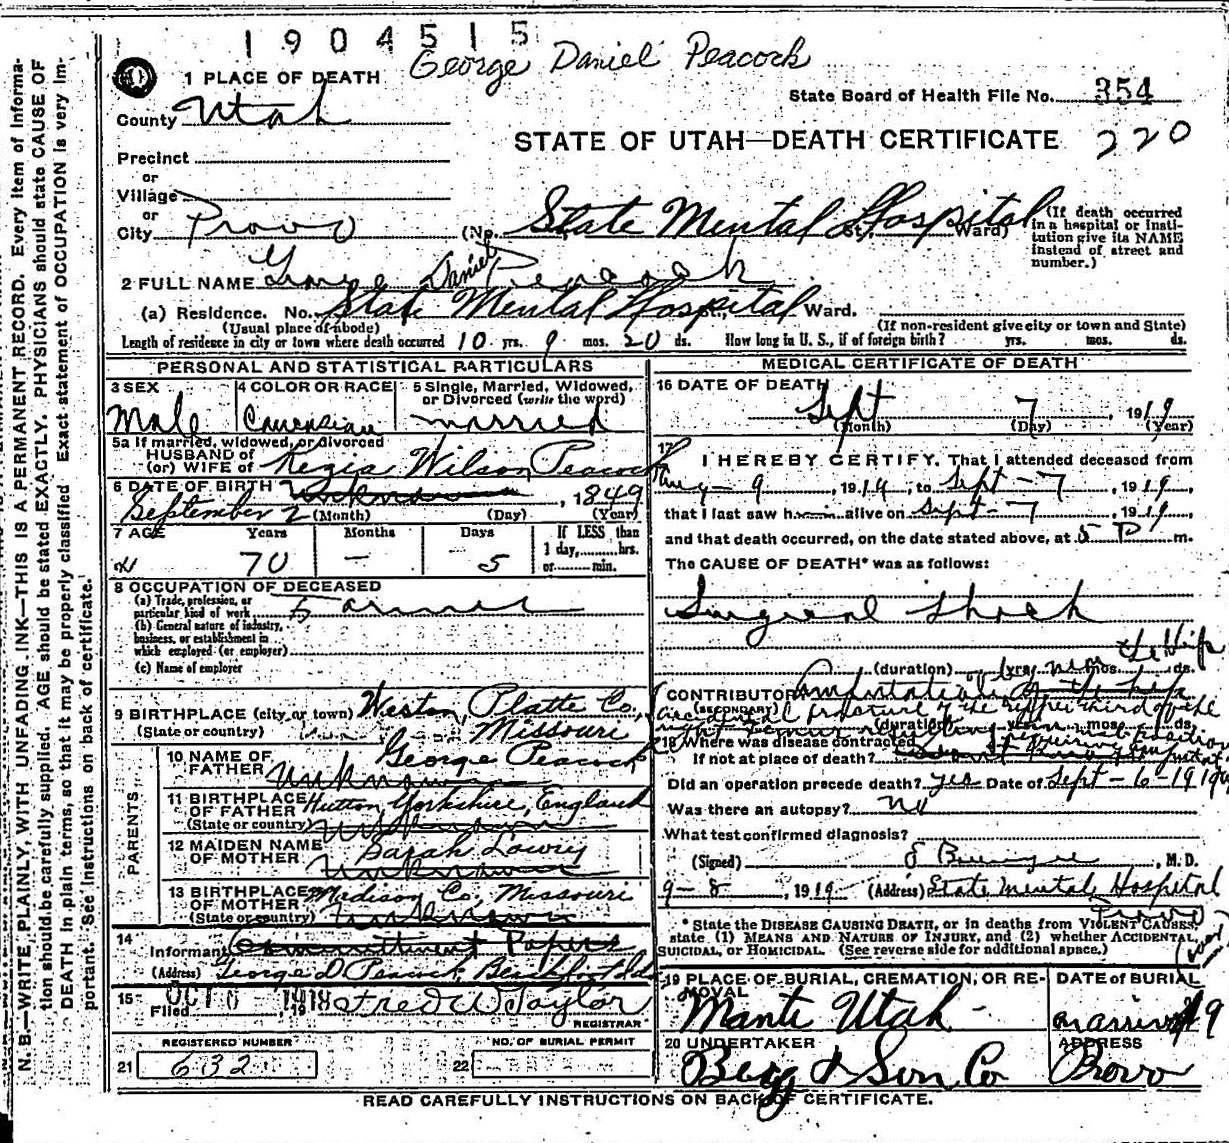 1904515
George Daniel Peacock
1 PLACE OF DEATH
State Board of Health File No. 354
County Utah
STATE OF UTAH—DEATH CERTIFICATE 220
Precinct
or
Village
or
City Provo (No. State Mental Hospital St., Ward)
(If death occurred in a hospital or institution give its NAME instead of street and number.)
2 FULL NAME George Daniel Peacock
(a) Residence. No. State Mental Hospital St., Ward.
(Usual place of abode) (If non-resident give city or town and State)
Length of residence in city or town where death occurred 10 yrs. 9 mos. 20 ds. How long in U. S., if of foreign birth? yrs. mos. ds.
PERSONAL AND STATISTICAL PARTICULARS
3 SEX Male
4 COLOR OR RACE Caucasian
5 Single, Married, Widowed, or Divorced (write the word) married
5a If married, widowed, or divorced
HUSBAND of
(or) WIFE of Regia Wilson Peacock
6 DATE OF BIRTH unknown, 1849
September 2 (Month) (Day) (Year)
7 AGE Years 70 Months — Days 5 If LESS than 1 day, hrs. or min.
8 OCCUPATION OF DECEASED
(a) Trade, profession, or particular kind of work Farmer
(b) General nature of industry, business, or establishment in which employed (or employer)
(c) Name of employer
9 BIRTHPLACE (city or town) Weston, Platte Co.,
(State or country) Missouri
PARENTS
10 NAME OF FATHER George Peacock
Unknown
11 BIRTHPLACE OF FATHER Hutton Yorkshire, England
(State or country) Unknown
12 MAIDEN NAME OF MOTHER Sarah Lowry
Unknown
13 BIRTHPLACE OF MOTHER Madison Co, Missouri
(State or country) Unknown
14
Informant Committment Papers
(Address) George D Peacock, Blackfoot Ida
15 Filed OCT 6 1919 Fred W Taylor
REGISTRAR
REGISTERED NUMBER
21 632
NO. OF BURIAL PERMIT
22
MEDICAL CERTIFICATE OF DEATH
16 DATE OF DEATH
Sept 7, 1919
(Month) (Day) (Year)
17 I HEREBY CERTIFY, That I attended deceased from
Aug - 9, 1919, to Sept - 7, 1919,
that I last saw h alive on Sept - 7, 1919,
and that death occurred, on the date stated above, at 5 P m.
The CAUSE OF DEATH* was as follows:
Surgical Shock
(duration) yrs. mos. ds.
CONTRIBUTORY Amputation at the hip
(SECONDARY) accidental fracture of the upper third of the
(duration) years mos. ds.
right femur
18 Where was disease contracted
If not at place of death?
Did an operation precede death? yes Date of Sept - 6 - 1919
Was there an autopsy? no
What test confirmed diagnosis?
(Signed) , M. D.
9 - 8, 1919 (Address) State Mental Hospital
Provo
*State the DISEASE CAUSING DEATH, or in deaths from VIOLENT CAUSES, state (1) MEANS AND NATURE OF INJURY, and (2) whether ACCIDENTAL, SUICIDAL, OR HOMICIDAL. (See reverse side for additional space.)
19 PLACE OF BURIAL, CREMATION, OR REMOVAL
Manti Utah
DATE of BURIAL
19
20 UNDERTAKER
Berg & Son Co
ADDRESS
Provo
READ CAREFULLY INSTRUCTIONS ON BACK OF CERTIFICATE.
N. B.—WRITE PLAINLY, WITH UNFADING INK—THIS IS A PERMANENT RECORD. Every item of information should be carefully supplied. AGE should be stated EXACTLY. PHYSICIANS should state CAUSE OF DEATH in plain terms, so that it may be properly classified. Exact statement of OCCUPATION is very important. See instructions on back of certificate.